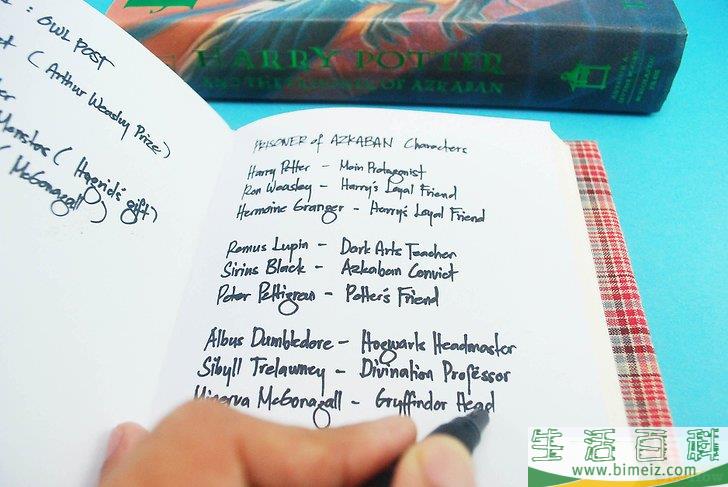 HARRY POTTER
AND THE PRISONER OF AZKABAN
: OWL POST
(Arthur Weasley Prize)
Monstas (Hagrid's gift)
(McGonagall)
PRISONER of AZKABAN Characters
Harry Potter – Main Protagonist
Ron Weasley – Harry's Loyal Friend
Hermoine Granger – Harry's Loyal Friend
Remus Lupin – Dark Arts Teacher
Sirius Black – Azkaban Convict
Peter Pettigrew – Potter's Friend
Albus Dumbledore – Hogwarts Headmaster
Sibyll Trelawney – Divination Professor
Minerva McGonagall – Gryffindor Head
生活百科
www.bimeiz.com